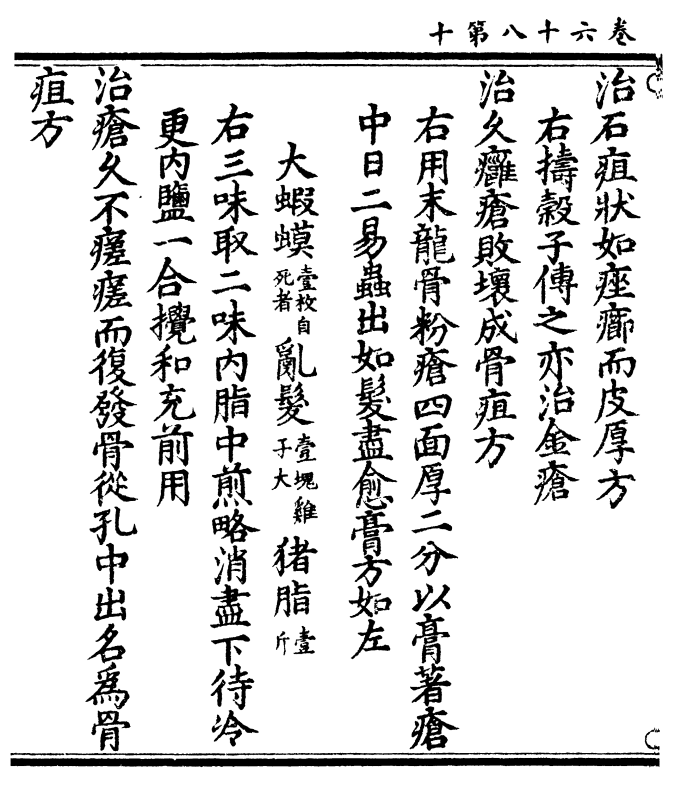 卷六十八第十
治石疽狀如痤癤而皮厚方
右擣穀子傅之亦治金瘡
治久癰瘡敗壞成骨疽方
右用末龍骨粉瘡四面厚二分以膏著瘡
中日二易蟲出如髮盡愈膏方如左
大蝦蟆壹枚自死者亂髮壹塊雞子大猪脂壹斤
右三味取二味內脂中煎略消盡下待冷
更內鹽一合攪和充前用
治瘡久不瘥瘥而復發骨從孔中出名為骨
疽方